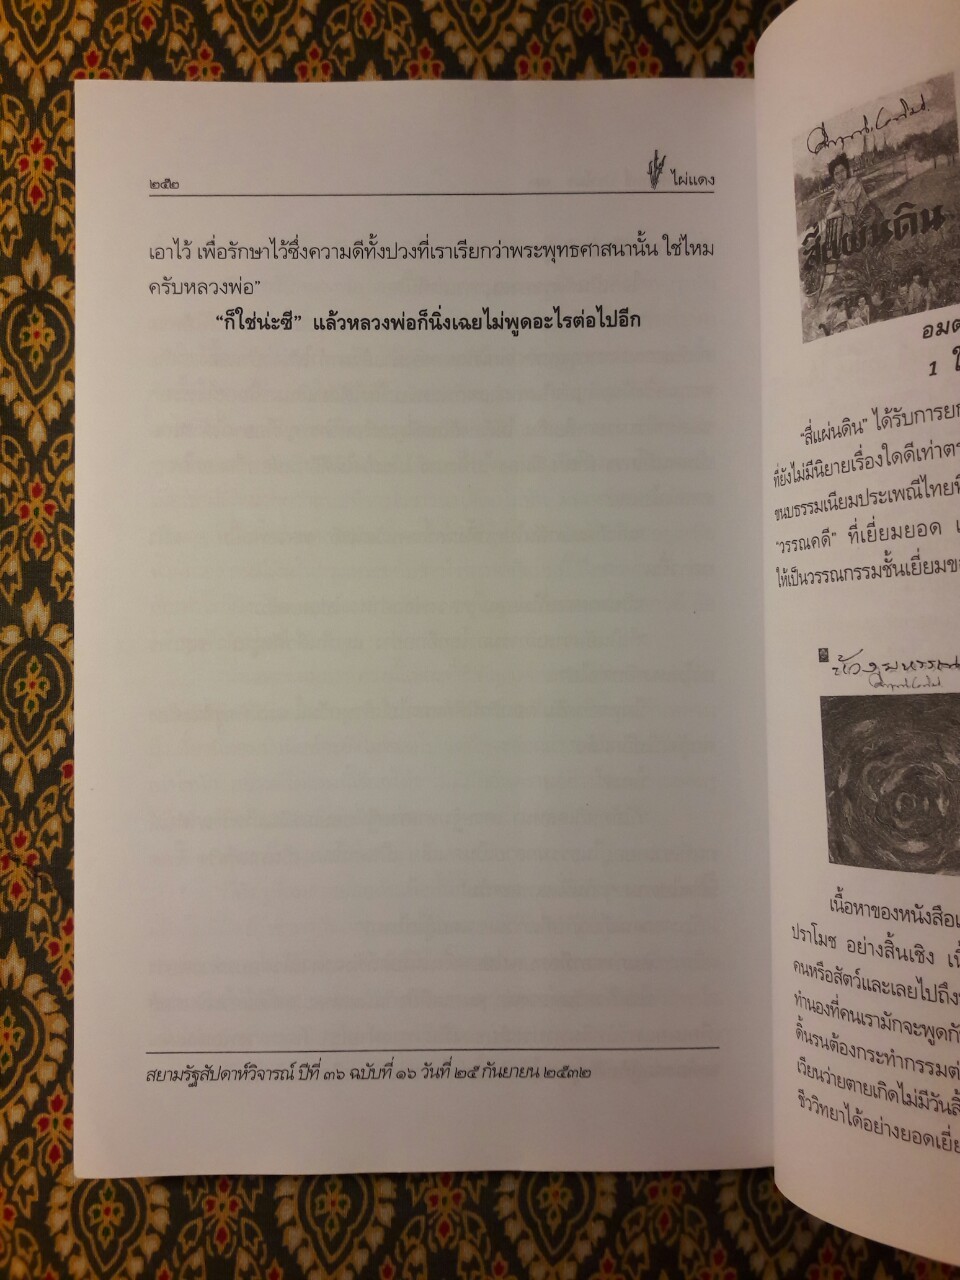 ๒๕๒
ไผ่แดง
เอาไว้ เพื่อรักษาไว้ซึ่งความดีทั้งปวงที่เราเรียกว่าพระพุทธศาสนานั้น ใช่ไหม
ครับหลวงพ่อ”
“ก็ใช่น่ะซี” แล้วหลวงพ่อก็นิ่งเฉยไม่พูดอะไรต่อไปอีก
สยามรัฐสัปดาห์วิจารณ์ ปีที่ ๓๖ ฉบับที่ ๑๖ วันที่ ๒๕ กันยายน ๒๕๓๒
สี่แผ่นดิน
อมต
1 ใ
“สี่แผ่นดิน” ได้รับการยก
ที่ยังไม่มีนิยายเรื่องใดดีเท่าตร
ขนบธรรมเนียมประเพณีไทยที่
“วรรณคดี” ที่เยี่ยมยอด
ให้เป็นวรรณกรรมชั้นเยี่ยมข
เนื้อหาของหนังสือเ
ปราโมช อย่างสิ้นเชิง เนื้
คนหรือสัตว์และเลยไปถึง
ทำนองที่คนเรามักจะพูดกั
ดิ้นรนต้องกระทำกรรมต่
เวียนว่ายตายเกิดไม่มีวันสิ้
ชีววิทยาได้อย่างยอดเยี่ย